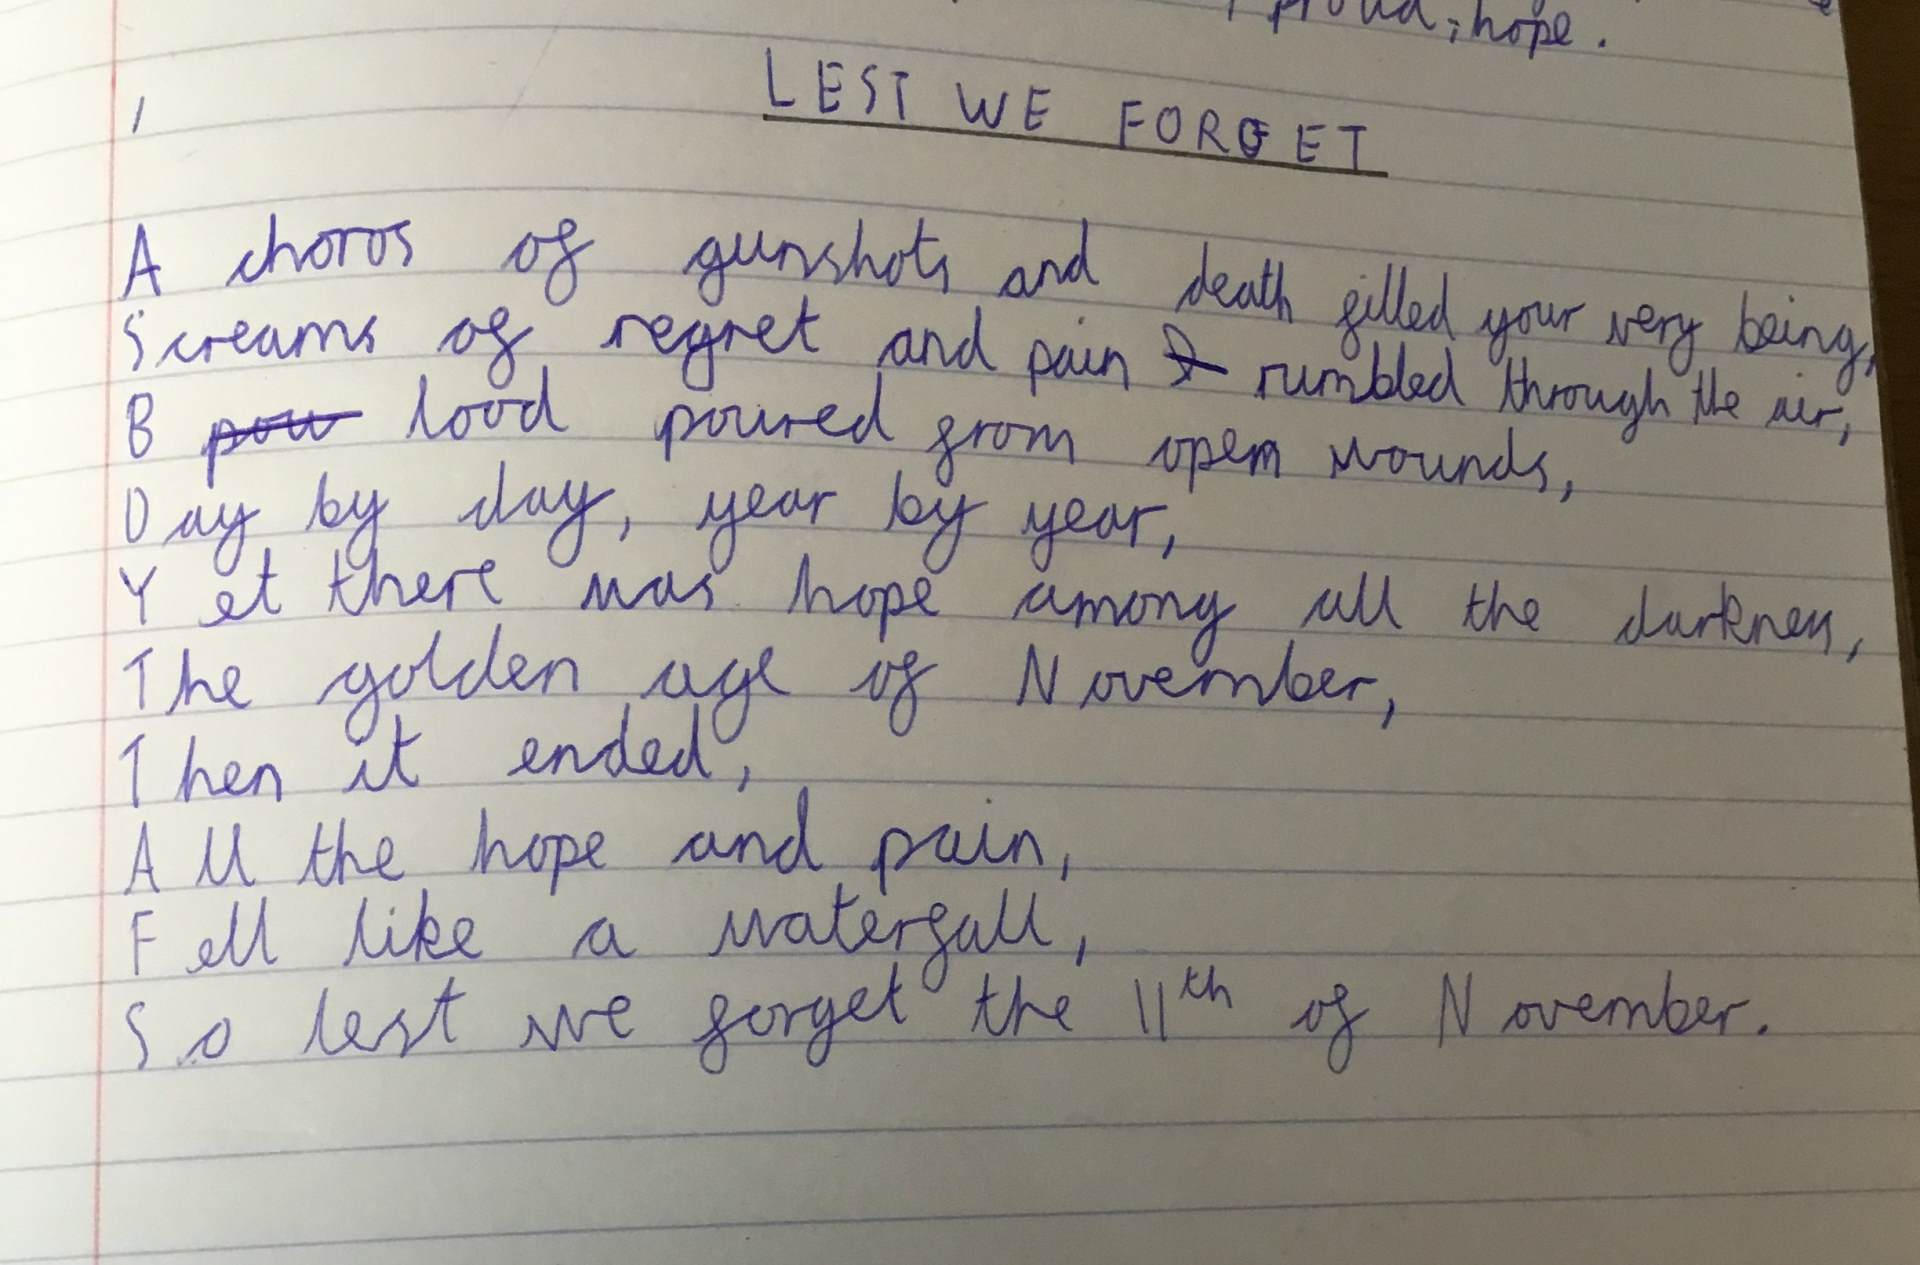 proud, hope.
LEST WE FORGET
A choros of gunshots and death filled your very being,
Screams of regret and pain rumbled through the air,
B pow lood poured from open wounds,
Day by day, year by year,
Yet there was hope among all the darkness,
The golden age of November,
Then it ended,
All the hope and pain,
Fell like a waterfall,
So lest we forget the 11th of November.